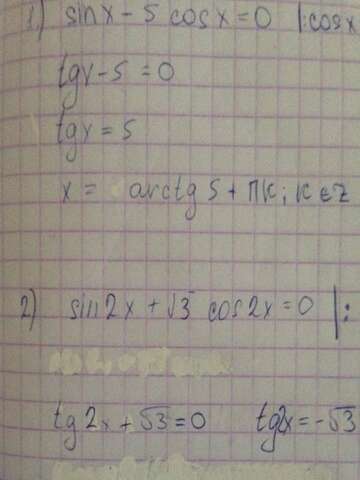 1) sin x - 5 cos x = 0 |: cos x
tg x - 5 = 0
tg x = 5
x = arctg 5 + πk; k ∈ Z
2) sin 2x + √3 cos 2x = 0 |:
tg 2x + √3 = 0 tg 2x = -√3